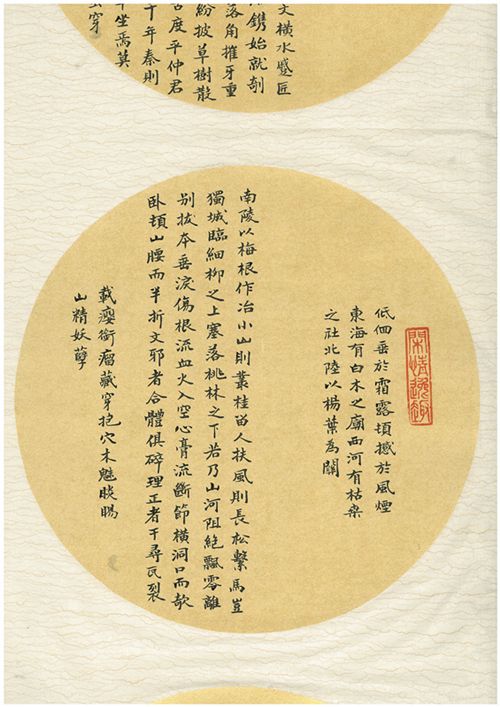 文橫水蹙匠
鐫始就剞
落角摧牙重
紛披草樹散
古度平仲君
千年秦則
坐焉莫
穿
低佪垂於霜露頓撼於風煙
東海有白木之廟西河有枯桑
之社北陸以楊葉為關
南陵以梅根作冶小山則叢桂留人扶風則長松繫馬豈
獨城臨細柳之上塞落桃林之下若乃山河阻絕飄零離
別拔本垂淚傷根流血火入空心膏流斷節橫洞口而欹
臥頓山腰而半折文邪者合體俱碎理正者千尋瓦裂
載癭銜瘤藏穿抱穴木魅睒睗
山精妖孽